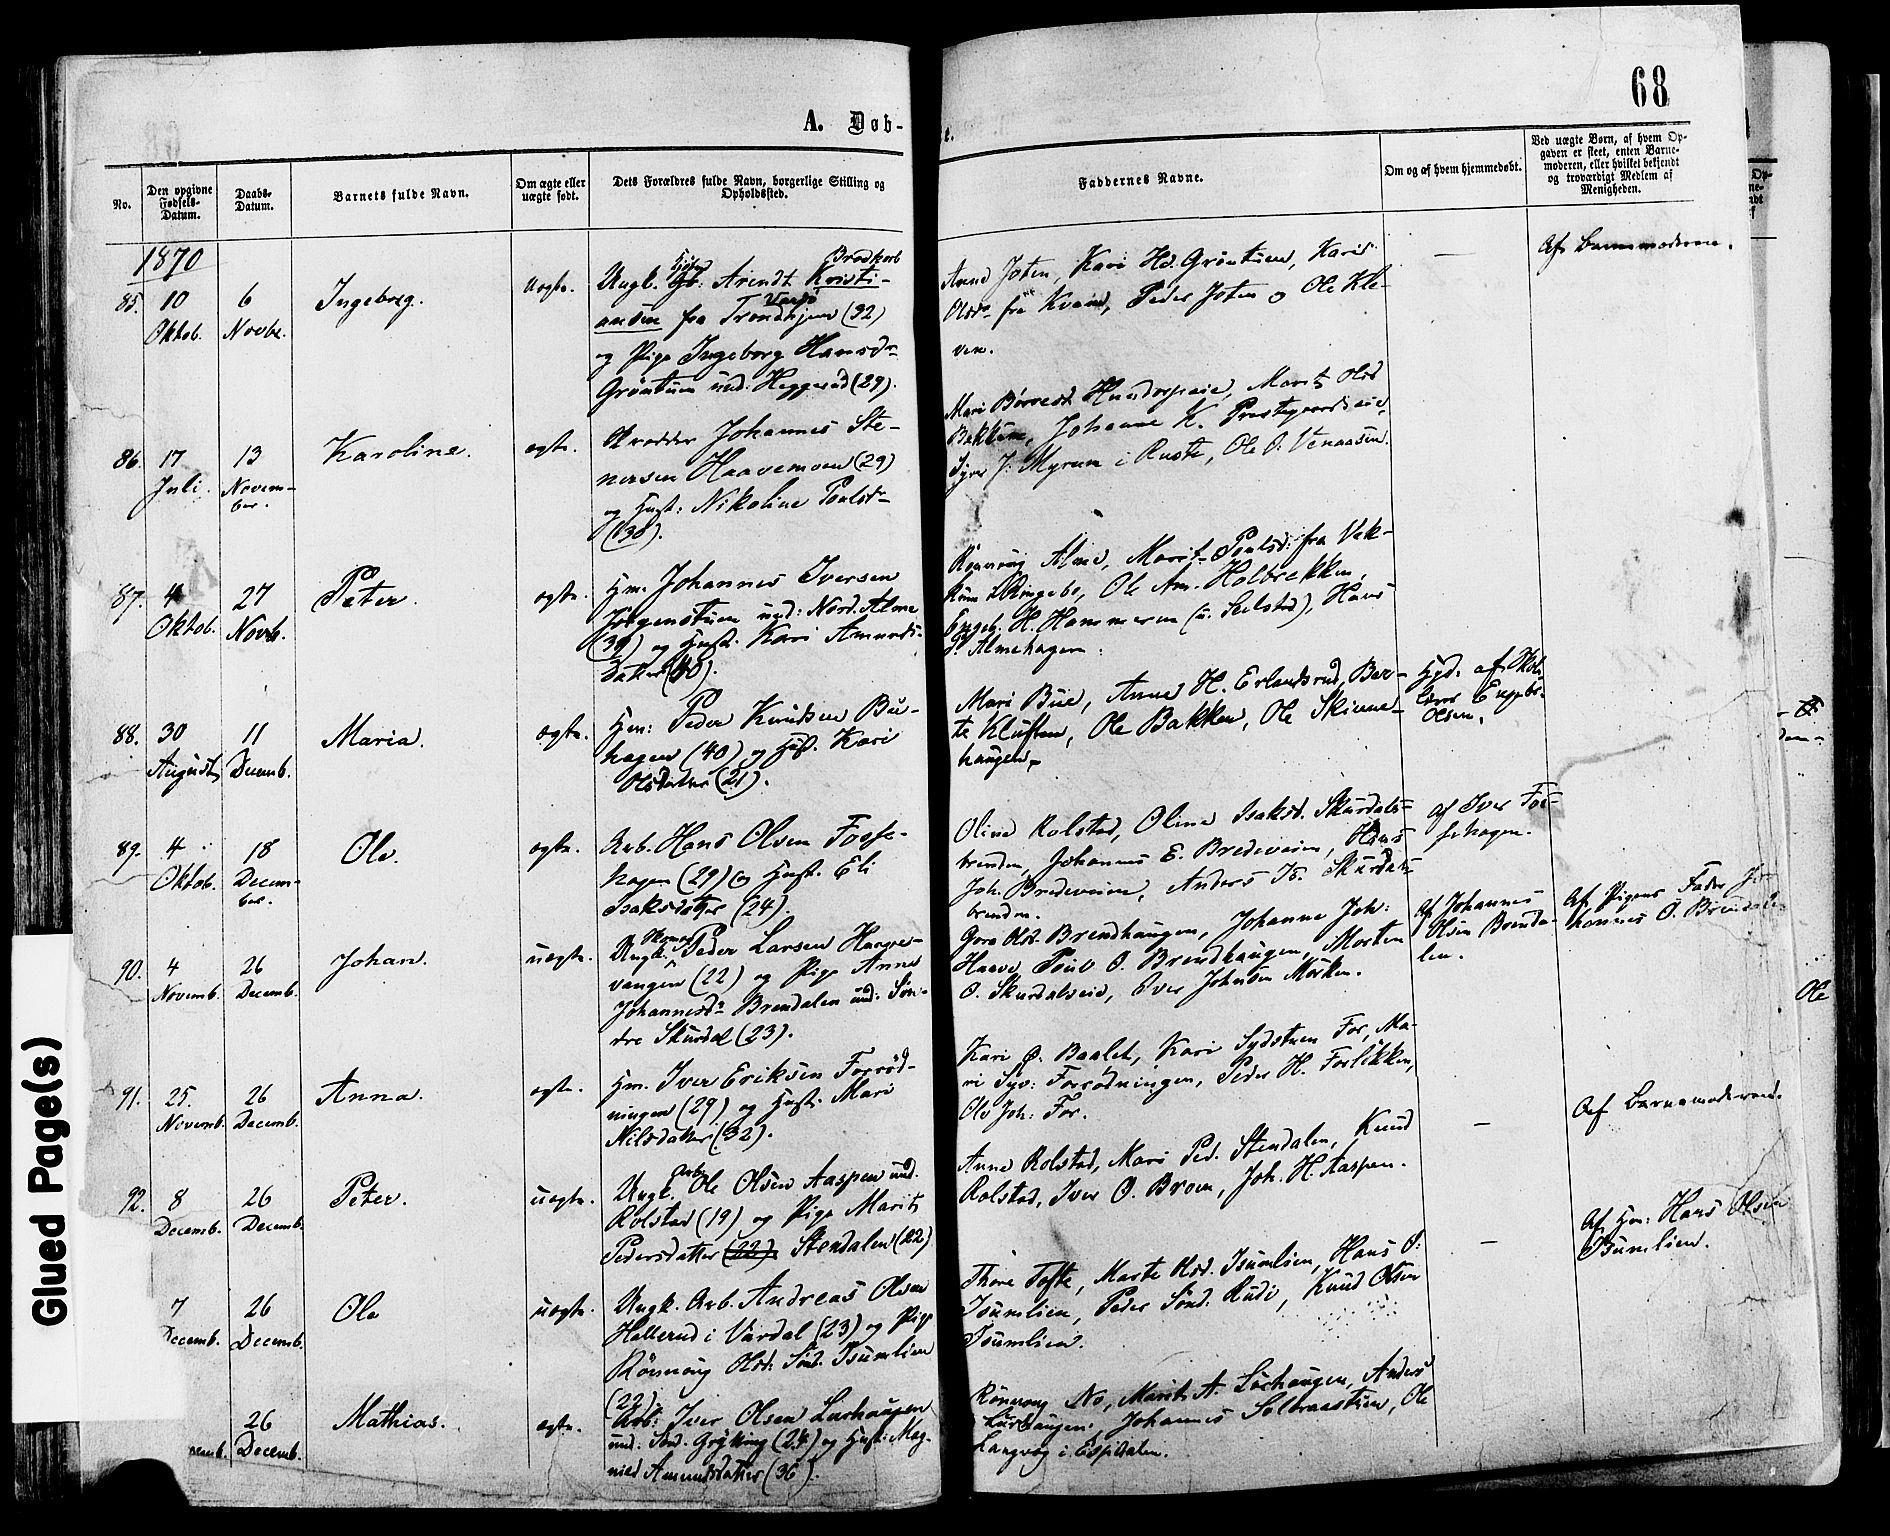 68
A. Døb-
e.
No.
Den opgivne Fødsels-Datum.
Daabs-Datum.
Barnets fulde Navn.
Om ægte eller uægte født.
Dets Forældres fulde Navn, borgerlige Stilling og Opholdssted.
Faddernes Navne.
Om og af hvem hjemmedøbt.
Ved uægte Børn, af hvem Op-
gaven er skeet, enten Barne-
moderen, eller hvilket bekjendt
og troværdigt Medlem af
Menigheden.
1870
85. 10 Oktob.
6 Novbr.
Ingeborg.
uægte.
Brodkorb
Ungk. Arindt Kristi-
ansen fra Trondhjem (32)
og Pige Ingeborg Hansdr
Grøntuen und: Heggerud (29).
Anne Joten, Kari Hd. Grøntuen, Kari
Olsdr fra Kvam, Peder Joten og Ole Kle-
ven.
—
Af Barnemoderen.
86. 17 Juli.
13 Novem-
ber.
Karoline.
ægte.
Skrædder Johannes Ste-
nersen Haavemoen (29)
og Hust: Nikoline Poulsdr
(30).
Mari Børresd. Hundorpeie, Marit Olsd
Bakken, Johanne K. Præstegaardseie,
Syver J. Myrum i Ruste, Ole O. Venaasen.
87. 4 Oktob.
27 Novb.
Peter.
ægte.
Hm. Johannes Iversen
Jørgenstuen und: Nord. Alme
(39) og Hust. Kari Amunds-
datter (40).
Rønnoug Alme, Marit Poulsd: fra Vek-
kum i Ringebo, Ole Am. Holbrekken,
Engeb. H. Hammeren (u. Sulstad), Hans
P. Almehagen.
88. 30 August
11 Decemb.
Maria.
ægte.
Hm: Peder Knudsen Bu-
hagen (40) og Hust. Kari
Olsdatter (21).
Mari Bue, Anne H. Erlandsrud, Ber-
te Kluften, Ole Bakken, Ole Skinne-
haugen.
Hjd. af Skole-
lærer Engebr.
Olsen.
89. 4 Oktob.
18 Decem-
ber.
Ole.
ægte.
Arb. Hans Olsen Fosse-
hagen (29) og Hust. Eli
Isaksdatter (24).
Oline Rolstad, Oline Isaksd. Skurdals-
brenden, Johannes E. Bredeveien, Hans
Joh. Bredeveien, Anders Is. Skurdals-
brenden.
af Iver Fos-
sehagen.
90. 4 Novemb.
26 Decemb.
Johan.
uægte.
Ungk. Peder Larsen Harpe-
vangen (22) og Pige Anne
Johannesdr Brendalen und: Søn-
dre Skurdal (23).
Goro Olsd. Brendhaugen, Johanne Joh:
Haave, Poul O. Brendhaugen, Morten
O. Skurdalseie, Iver Johnsen Morken.
Af Johannes
Olsen Brenda-
len.
Af Pigens Fader Jo-
hannes O. Brendalen
91. 25. Novemb.
26 Decemb.
Anna.
ægte.
Hm. Iver Eriksen Forrød-
ningen (29) og Hust. Mari
Nilsdatter (32).
Kari O. Baalet, Kari Sydstuen For, Ma-
ri Syv: Forrødningen, Peder H. Forløkken,
Ole Joh: For.
92. 8 Decemb.
26 Decemb.
Peter.
uægte.
Ungk. Arb. Ole Olsen Aaspen und.
Rolstad (19) og Pige Marit
Pedersdatter (22) Stendalen (22)
Anne Rolstad, Mari Ped. Stendalen, Knud
Rolstad, Iver O. Broen, Joh. H. Aaspen.
—
Af Barnemoderen.
7 Decemb.
26 Decemb.
Ole
uægte.
Ungk. Arb. Andreas Olsen
Hallerud i Vardal (23) og Pige
Rønnoug Olsd: Sønd. Isumlien
(22).
Thore Tofte, Marte Olsd. Isumlien, Hans O:
Isumlien, Peder Sønd. Rudi, Knud Olsen
Isumlien.
—
Af Hm: Hans Olsen
Isumlien.
emb.
26 Decemb.
Mathias.
ægte.
Arb: Iver Olsen Lurhaugen
und. Sød. Grytting (24) og Hust: Mag-
nild Amundsdatter (36).
Rønnoug No, Marit A. Lurhaugen, Anders
Lurhaugen, Johannes Solbraastuen, Ole
Langvog i Espedalen.
Ole
Glued Page(s)